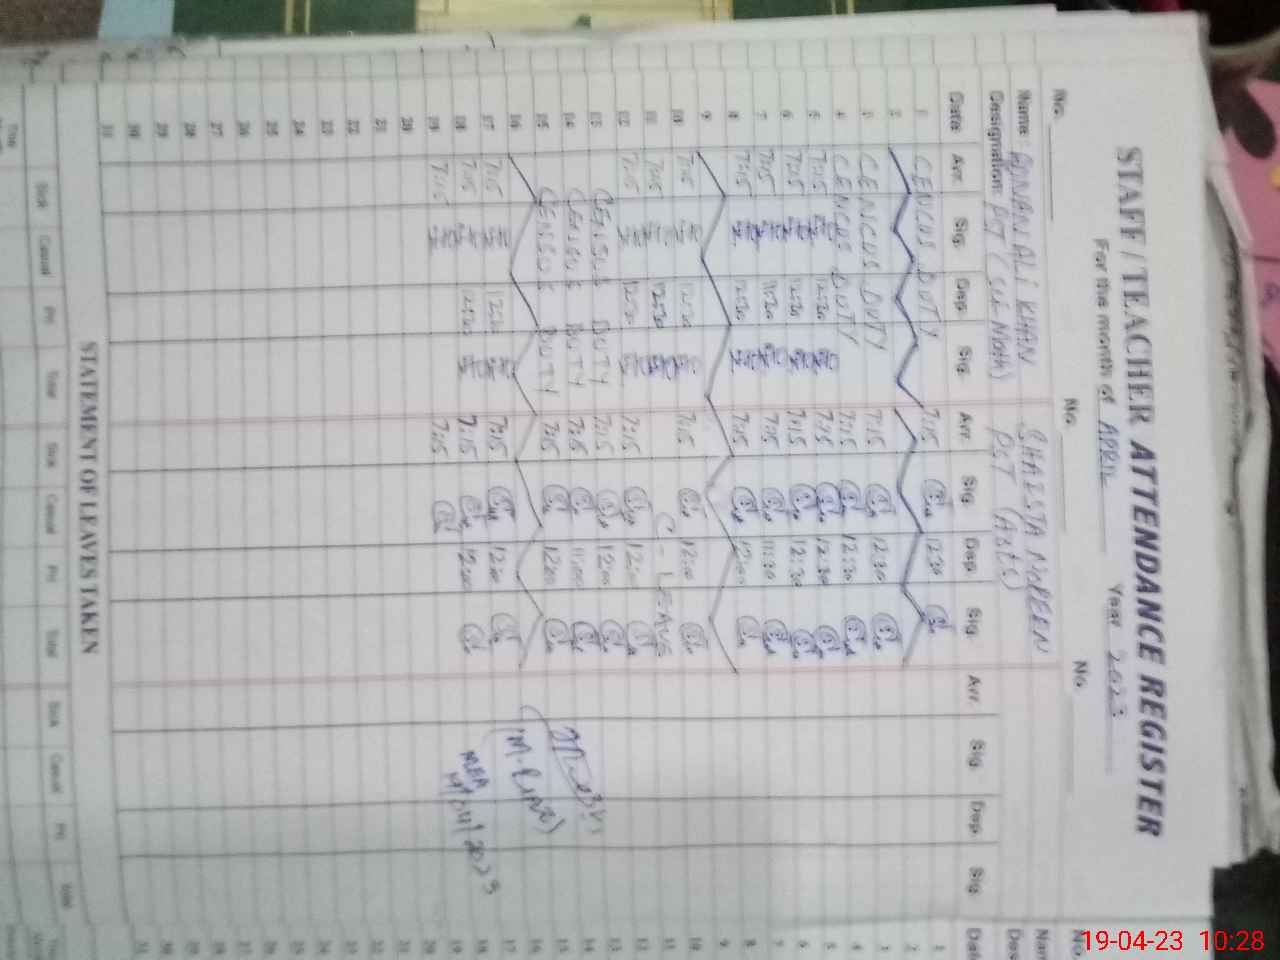 STAFF / TEACHER ATTENDANCE REGISTER
For the month of APRIL Year 2023
No. No. No. No.
Name: ADNAN ALI KHAN SHAISTA NOREEN Nam
Designation: PCT ( Des
Date Arr. Sig. Dep. Sig. Arr. Sig. Dep. Sig. Arr. Sig. Dep. Sig. Dat
1 CENCUS DUTY 7:15 12:30 1
2 2
3 CENCUS DUTY 7:15 12:30 3
4 CENCUS DUTY 7:15 12:30 4
5 7:15 12:30 7:15 12:30 5
6 7:15 12:30 7:15 12:30 6
7 7:15 11:30 7:15 11:30 7
8 7:15 12:30 7:15 12:00 8
9 9
10 7:15 12:30 7:15 12:00 10
11 7:15 12:30 C - LEAVE 11
12 7:15 12:30 7:15 12:00 12
13 CENSUS DUTY 7:15 12:00 13
14 CENSUS DUTY 7:15 11:00 14
15 CENSUS DUTY 7:15 12:00 15
16 16
17 7:15 12:30 7:15 12:00 17
18 7:15 12:30 7:15 12:00 18
19 7:15 7:15 19
20 20
21 21
22 22
23 23
24 24
25 25
26 26
27 27
28 28
29 29
30 30
31 31
MEA
2023
STATEMENT OF LEAVES TAKEN
Sick Casual Pri Total Sick Casual Pri Total Sick Casual Pri Total
19-04-23 10:28